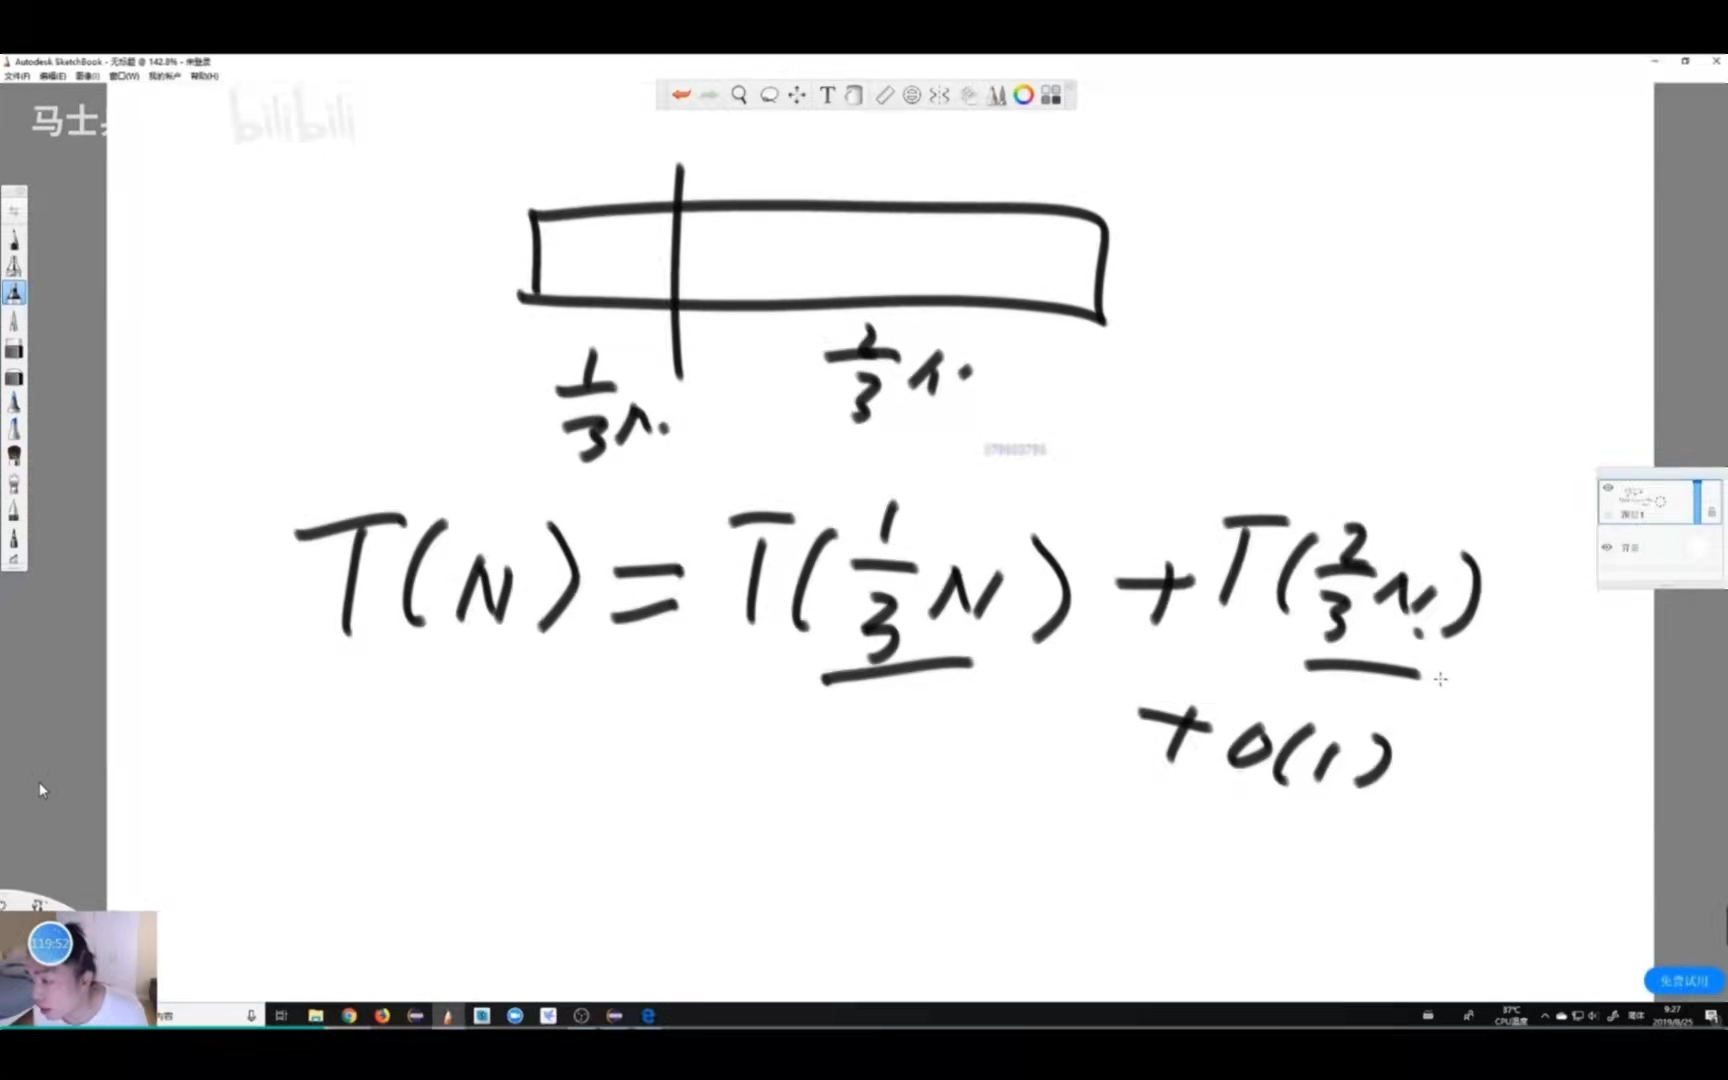 Autodesk SketchBook - 无标题 @ 142.8% - 未登录
文件(F) 编辑(E) 图像(I) 窗口(W) 我的帐户 帮助(H)
马士
bilibili
T
1/3 N.
2/3 N.
T(N) = T(1/3 N) + T(2/3 N)
+ O(1)
119:52
免费试用
内容
37℃
CPU温度
简体
9:27
2019/8/25